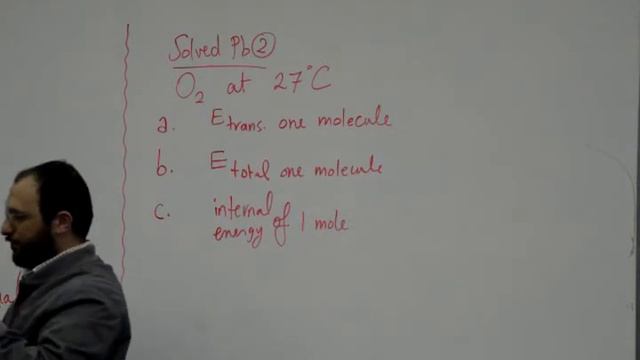 Solved Pb②
O₂ at 27°C
a. E trans. one molecule
b. E total one molecule
c. internal energy of 1 mole